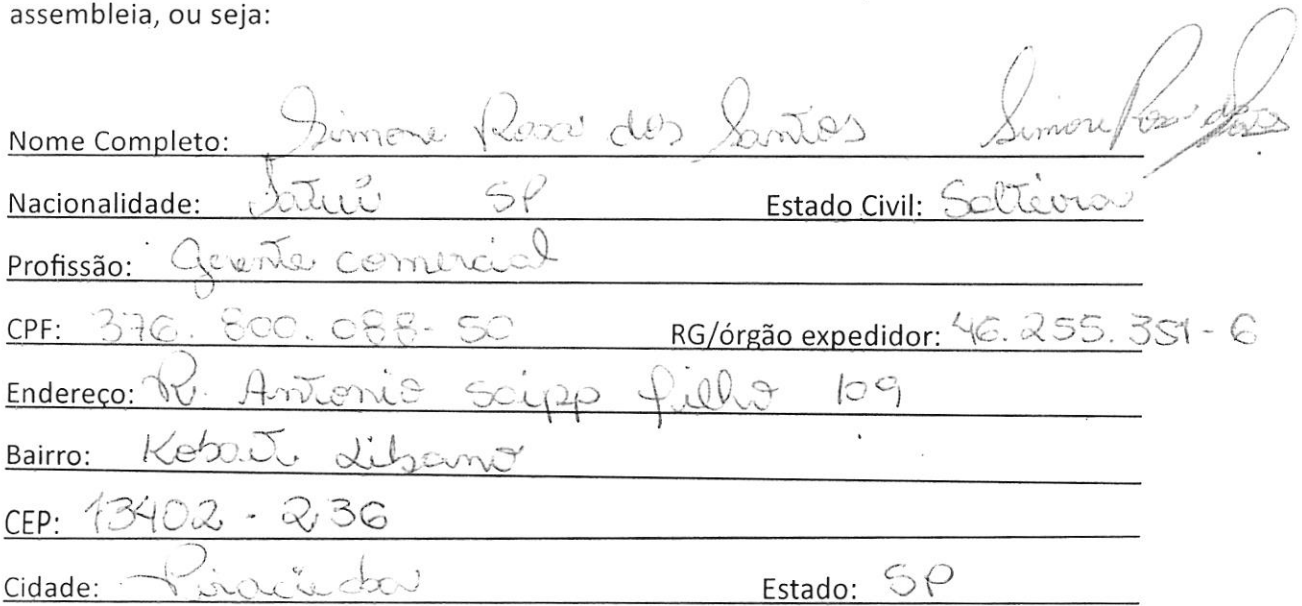 assembleia, ou seja:
Nome Completo: Simone Rosa dos Santos Simone Rosa dos Santos
Nacionalidade: Tatuí SP Estado Civil: Solteira
Profissão: Gerente comercial
CPF: 376.800.088-50 RG/órgão expedidor: 46.255.351-6
Endereço: R. Antonio Scipp filho 109
Bairro: Kobat Libano
CEP: 13402-236
Cidade: Piracicaba Estado: SP